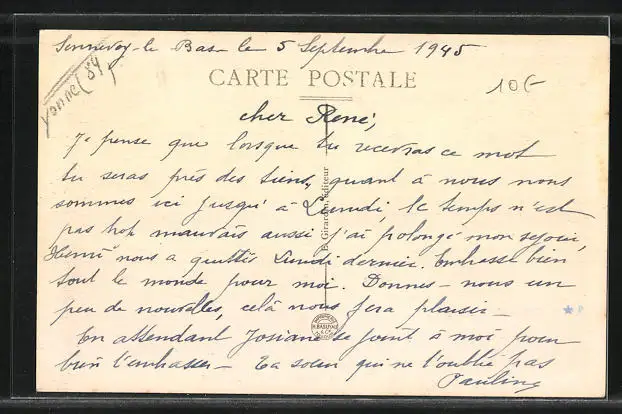 Sennevoy-le Bas le 5 Septembre 1945
Yonne (89)
CARTE POSTALE
10 €
cher René,
Je pense que lorsque tu recevras ce mot
tu seras près des tiens, quant à nous nous
sommes ici jusqu'à Lundi, le temps n'est
pas trop mauvais aussi j'ai prolongé mon séjour,
Henri nous a quittés Lundi dernier. Embrasse bien
tout le monde pour moi. Donnes-nous un
peu de nouvelles, celà nous fera plaisir -
En attendant Josiane se joint à moi pour
bien t'embrasser - Ta soeur qui ne t'oublie pas
Pauline
E. Girardin, éditeur